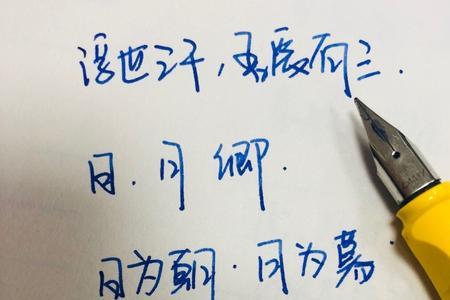 浮世三千,吾爱有三.
日.月 卿.
日为朝.月为暮